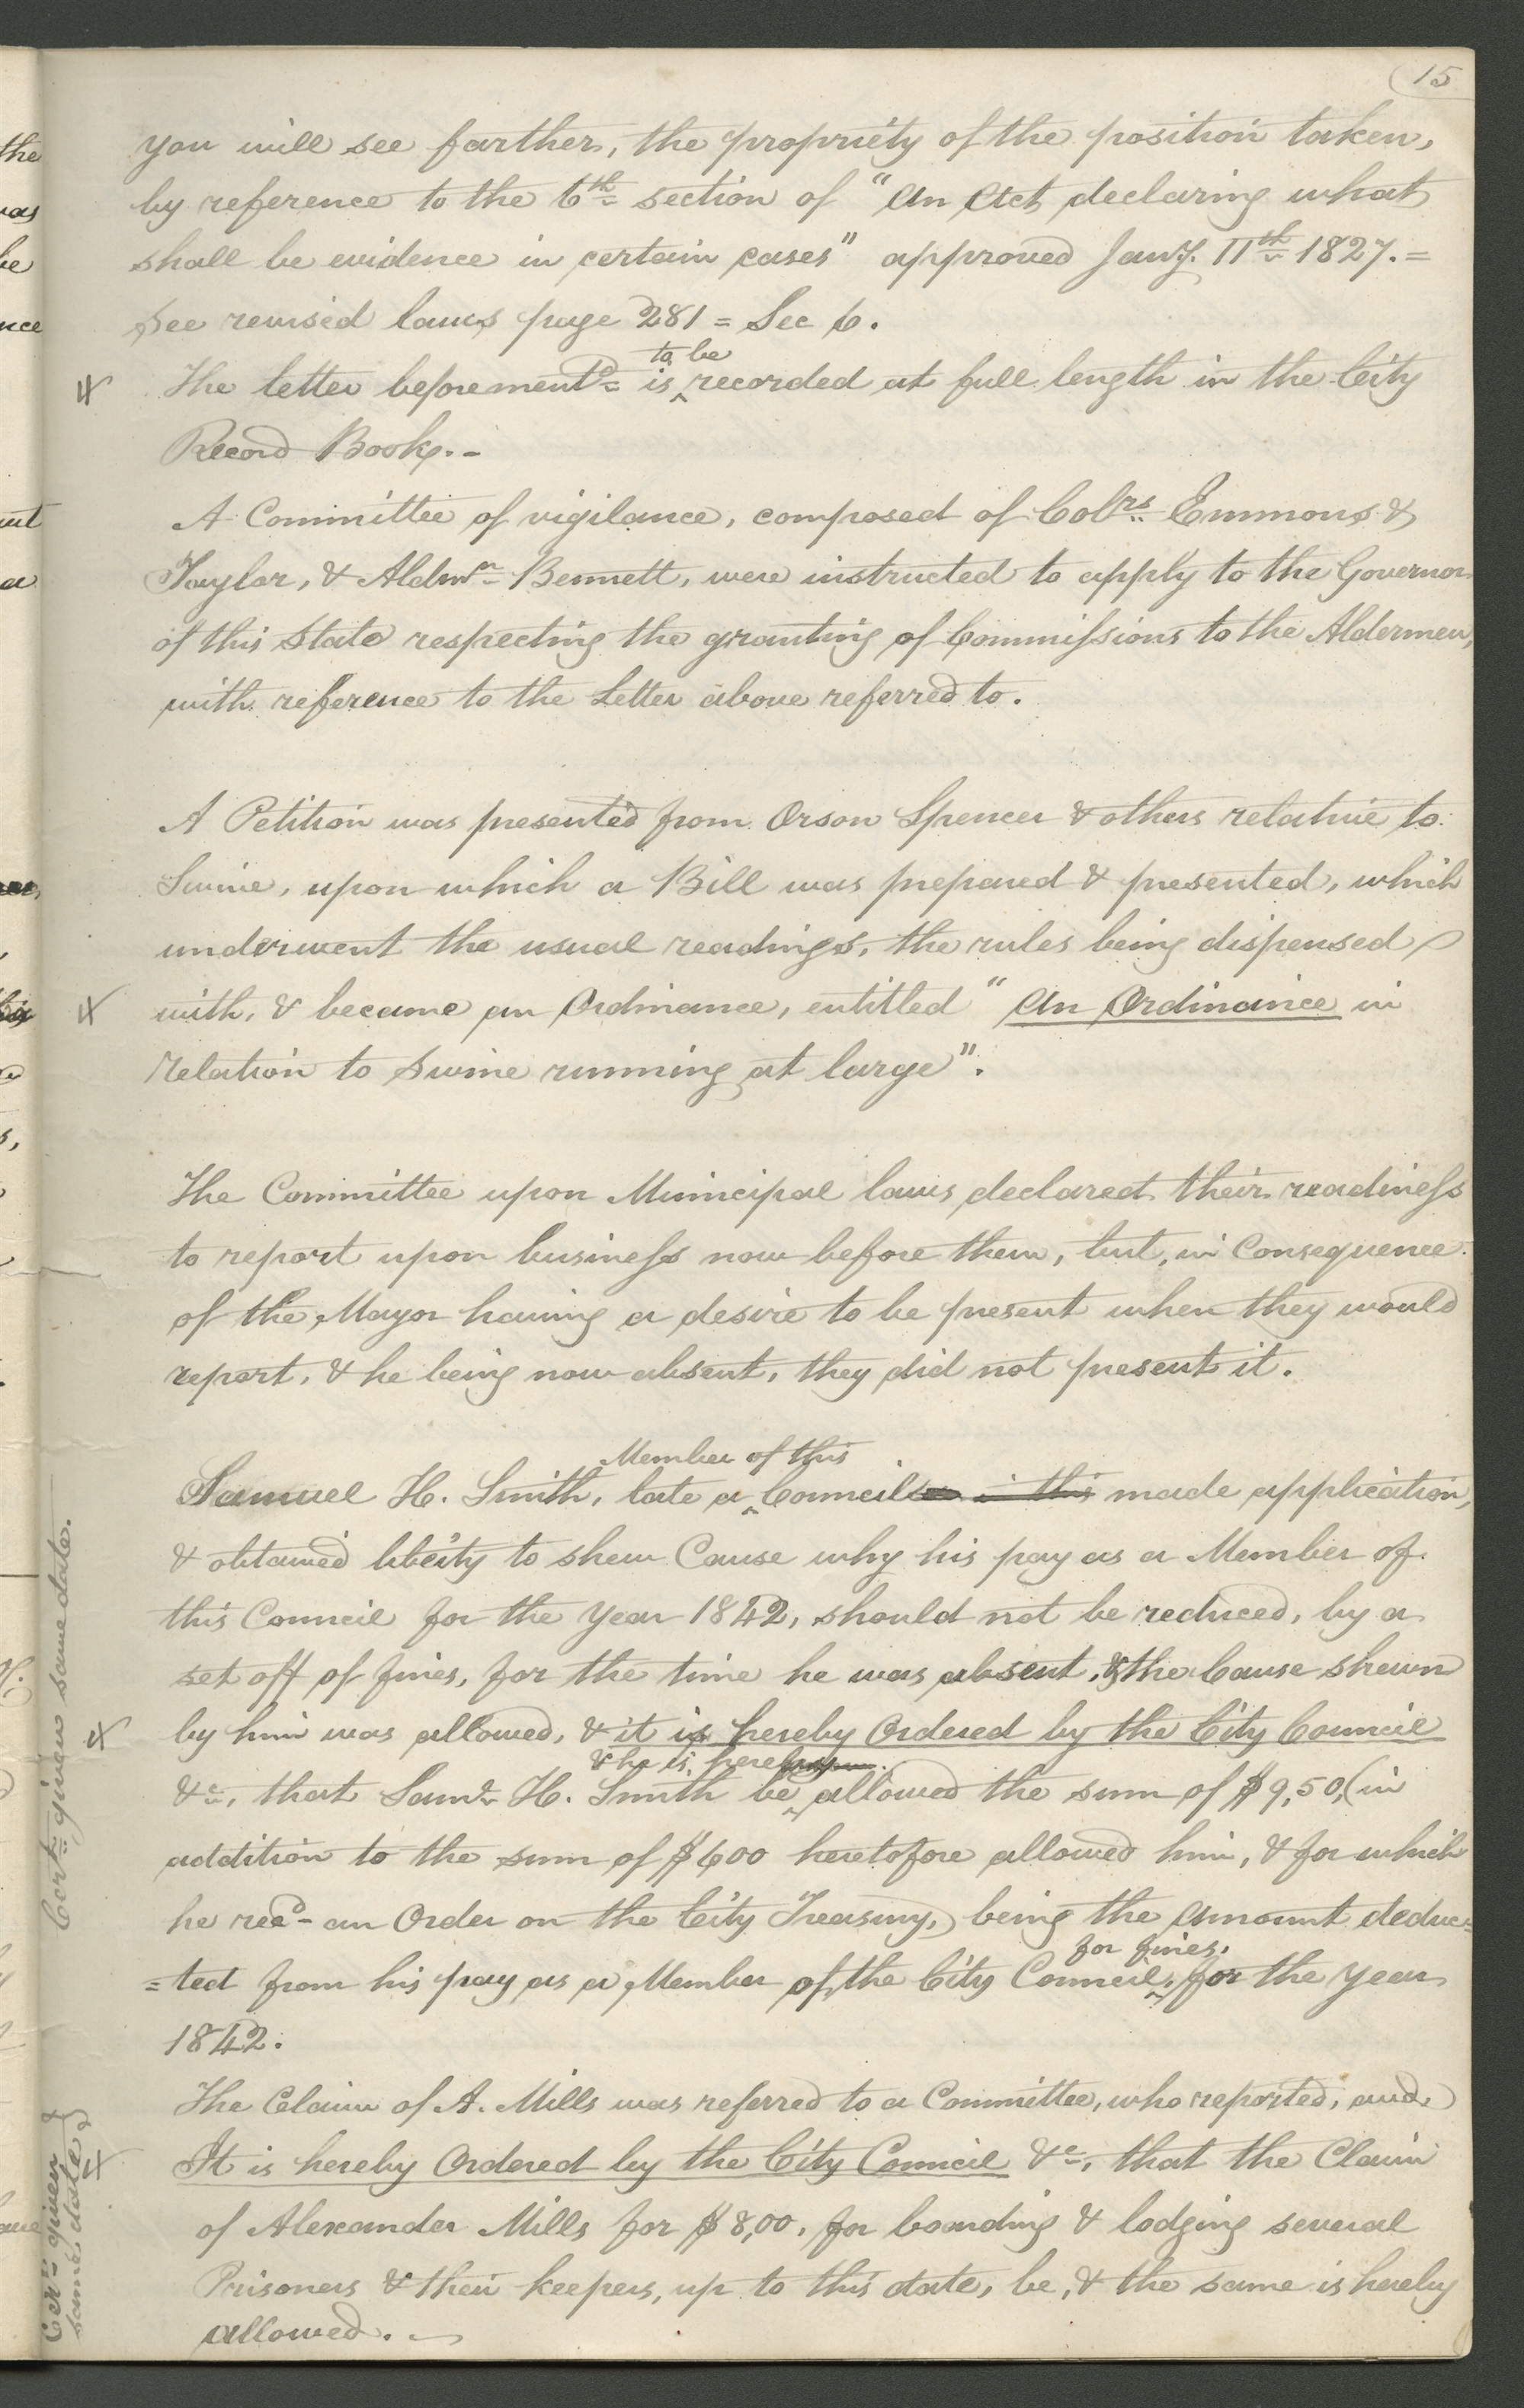 15
you will see farther, the propriety of the position taken,
by reference to the 6th section of "An Act declaring what
shall be evidence in certain cases" approved Jany. 11th 1827. =
see revised laws page 281 = Sec 6.
to be
The letter beforementd= is ^ recorded at full length in the City
Record Book. -
A Committee of vigilance, composed of Colrs Emmons &
Taylor, & Aldmn Bennett, were instructed to apply to the Governor
of this State respecting the granting of Commiſsions to the Aldermen,
with reference to the Letter above referred to.
A Petition was presented from Orson Spencer & others relative to
Swine, upon which a Bill was prepared & presented, which
underwent the usual readings, the rules being dispensed
with, & became an Ordinance, entitled "An Ordinance in
relation to Swine running at large".
The Committee upon Municipal laws declared their readineſs
to report upon busineſs now before them, but, in Consequence
of the Mayor having a desire to be present when they would
report, & he being now absent, they did not present it.
Member of this
Samuel H. Smith, late a ^ Council in this made application,
& obtained liberty to shew Cause why his pay as a Member of
this Council for the Year 1842, should not be reduced, by a
set off of fines, for the time he was absent, & the Cause shewn
by him was allowed, & it is hereby Ordered by the City Council
& he is hereby
&c, that Saml H. Smith be ^ allowed the sum of $9,50, (in
addition to the sum of $600 heretofore allowed him, & for which
he recd- an Order on the City Treasury,) being the amount deduc=
for fines,
=ted from his pay as a Member of the City Council, ^ for the year
1842.
The Claim of A. Mills was referred to a Committee, who reported, and
It is hereby Ordered by the City Council &c, that the Claim
of Alexander Mills for $8,00, for boarding & lodging several
Prisoners & their keepers, up to this date, be, & the same is hereby
allowed. -
Certe given same date.
Certe given
same date